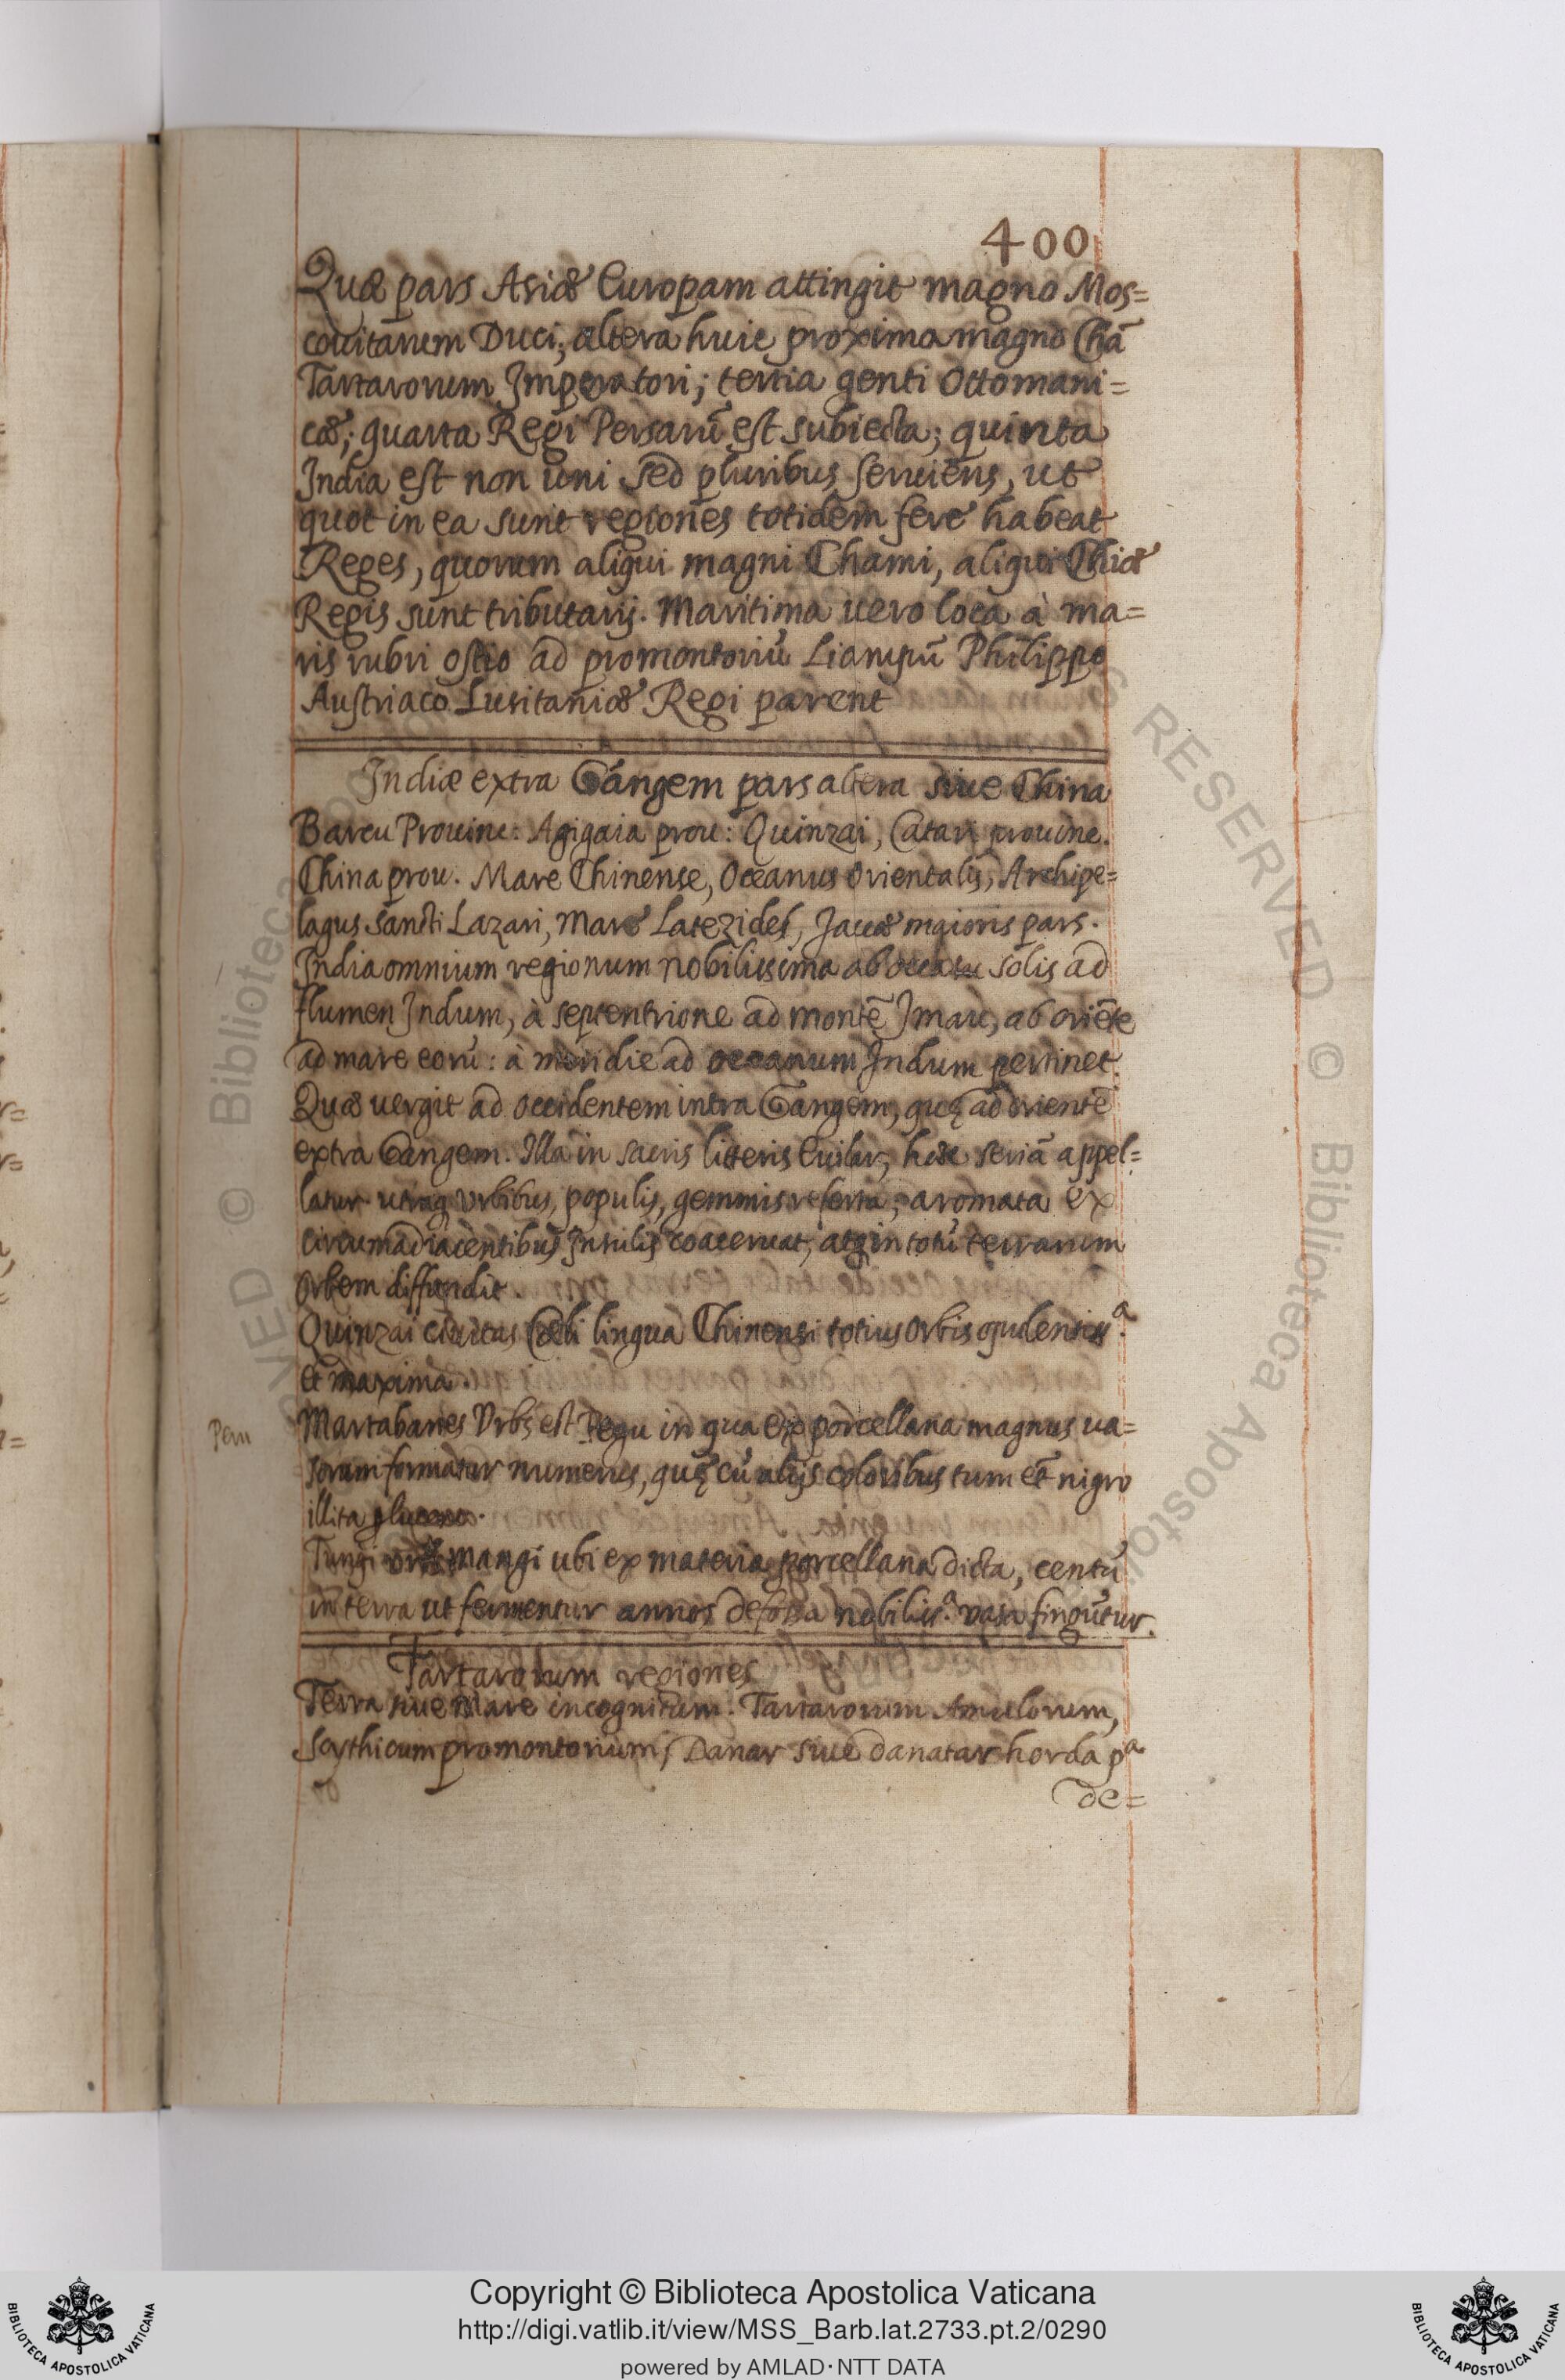 400
Quæ pars Asiæ Europam attingit magno Mos=
couitarum Duci; altera huic proxima magno Chā
Tartarorum Imperatori; tertia genti Ottomani=
cæ; quarta Regi Persarū est subiecta; quinta
India est non uni sed pluribus seruiens, ut
quot in ea sunt regiones totidem fere habeat
Reges, quorum aliqui magni Chami, aliqui Chiæ
Regis sunt tributarij. Maritima uero loca à ma=
ris rubri ostio ad promontoriū Liampū Philippo
Austriaco Lusitaniæ Regi parent
Indiæ extra Gangem pars altera siue China
Barcu Prouinc: Agigaia prou: Quinzai, Catai prouinc.
China prou. Mare Chinense, Oceanus Orientalis, Archipe=
lagus Sancti Lazari, Mare Latezidel, Jauæ maioris pars.
India omnium regionum nobilissima ab occasu solis ad
flumen Indum, à septentrione ad montē Imaū, ab oriēte
ad mare eorū: à meridie ad oceanum Indum pertinet.
Quæ uergit ad occidentem intra Gangem, quę ad orientē
extra Gangem. Illa in sacris litteris Euilat, hæc seriā appel=
latur utraq urbibus, populis, gemmis referta; aromata ex
circumadiacentibus Insulis coaceruat, atq in totū terrarum
orbem diffundit.
Quinzai ciuitas Cœli lingua Chinensi totius orbis opulentissᵃ.
et maxima.
Martabanes Vrbs est Pegu in qua ex porcellana magnus ua=
Pegu
sorum formatur numerus, quę cū alijs coloribus tum et nigro
illita
Tungi mangi ubi ex materia porcellana dicta, centū
in terra ut fermentur annos defossa nobilissᵃ. vasa fingūtur.
Tartarorum regiones
Terra siue Mare incognitum. Tartarorum
Scythicum promontorium, Danar siue danatar horda pᵃ
de=
Copyright © Biblioteca Apostolica Vaticana
http://digi.vatlib.it/view/MSS_Barb.lat.2733.pt.2/0290
powered by AMLAD·NTT DATA